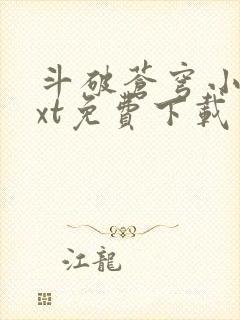 斗破蒼穹小
xt免費下載
江龍